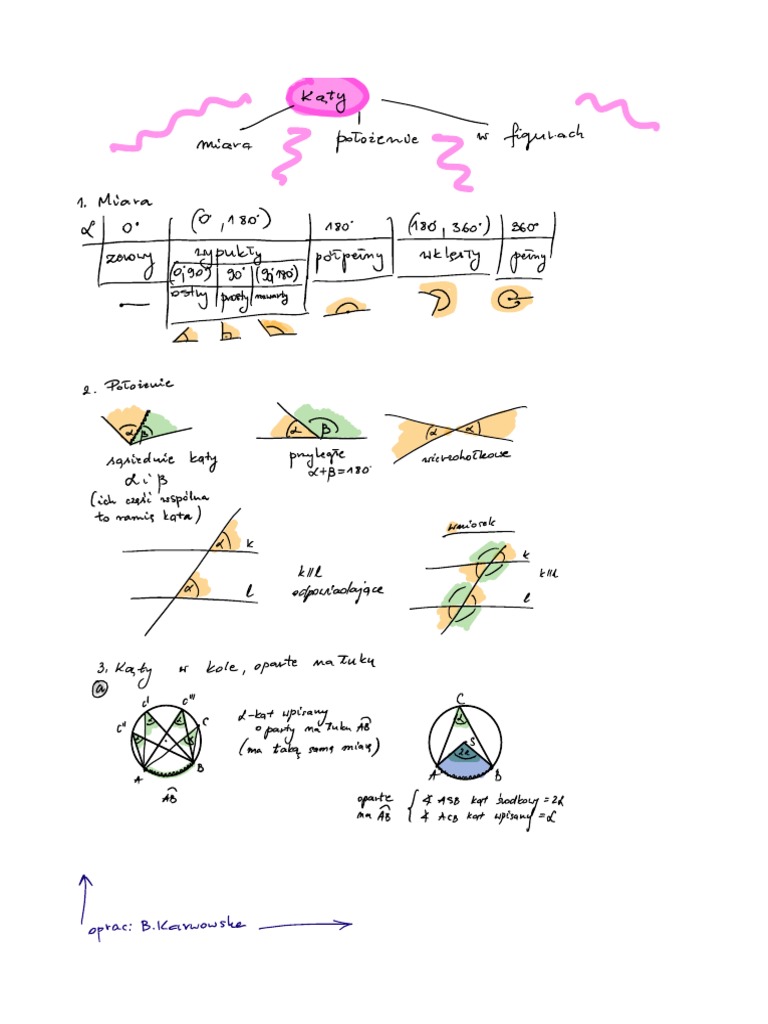 Kąty
miara położenie w figurach
1. Miara
α 0° (0°, 180°) 180° (180°, 360°) 360°
zerowy wypukły półpełny wklęsły pełny
(0°, 90°) 90° (90°, 180°)
ostry prosty rozwarty
2. Położenie
α β α β α α
sąsiednie kąty przyległe wierzchołkowe
α i β α+β=180°
(ich część wspólna
to ramię kąta)
wniosek
α k k
k||l k||l
α l odpowiadające l
3. Kąty w kole, oparte na łuku
a
C' C''' C'' C α α α A B
AB
α-kąt wpisany
oparty na łuku AB
(ma taką samą miarę)
C
α
S
2α
A B
oparte ∢ ASB kąt środkowy = 2α
na AB ∢ ACB kąt wpisany = α
oprac: B.Karwowska